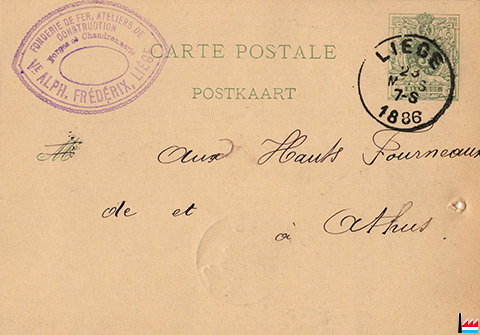 FONDERIE DE FER, ATELIERS DE
CONSTRUCTION
Forges et Chaudronnerie
Vᵉ ALPH. FRÉDÉRIX, LIÉGE
CARTE POSTALE
POSTKAART
LIEGE
23
7-S
1886
M
Aux Hauts Fourneaux
de et
à Athus